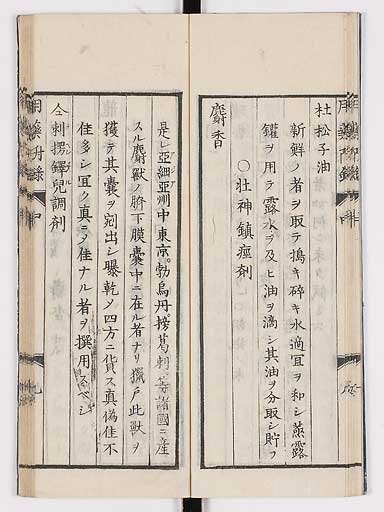 杜松子油
新鮮ノ者ヲ取テ搗キ碎キ水適宜ヲ和シ蒸露
鑵ヲ用テ露水ヲ及ヒ油ヲ滴シ其油ヲ分取シ貯フ
〇壮神鎮痙剤
麝香
是レ亞細亞州中東京。勃烏丹。榜葛剌等諸國ニ産
スル麝獣ノ臍下膜囊中ニ在ル者ナリ獵戸此獣ヲ
獲テ其囊ヲ宛出シ曝乾シ四方ニ貨ス真偽佳不
佳多シ宜ク真ニメ佳ナル者ヲ撰用スベシ
仝剌摂鐸兒調剤